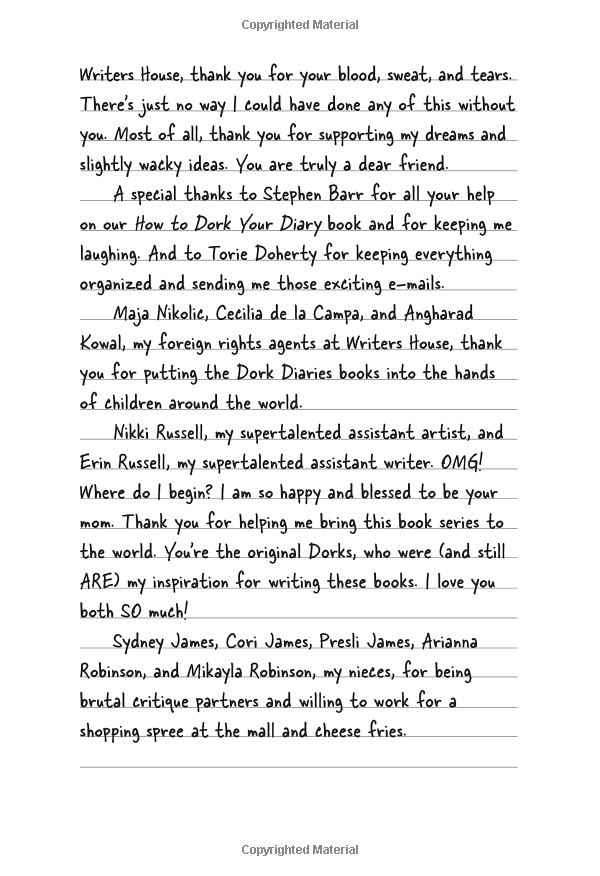 Copyrighted Material
Writers House, thank you for your blood, sweat, and tears.
There's just no way I could have done any of this without
you. Most of all, thank you for supporting my dreams and
slightly wacky ideas. You are truly a dear friend.
A special thanks to Stephen Barr for all your help
on our How to Dork Your Diary book and for keeping me
laughing. And to Torie Doherty for keeping everything
organized and sending me those exciting e-mails.
Maja Nikolic, Cecilia de la Campa, and Angharad
Kowal, my foreign rights agents at Writers House, thank
you for putting the Dork Diaries books into the hands
of children around the world.
Nikki Russell, my supertalented assistant artist, and
Erin Russell, my supertalented assistant writer. OMG!
Where do I begin? I am so happy and blessed to be your
mom. Thank you for helping me bring this book series to
the world. You're the original Dorks, who were (and still
ARE) my inspiration for writing these books. I love you
both SO much!
Sydney James, Cori James, Presli James, Arianna
Robinson, and Mikayla Robinson, my nieces, for being
brutal critique partners and willing to work for a
shopping spree at the mall and cheese fries.
Copyrighted Material